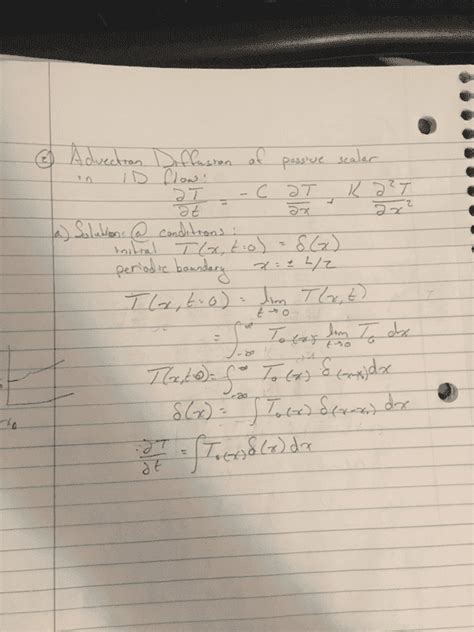 ② Advection Diffusion of passive scalar
in 1D flow:
∂T/∂t = -C ∂T/∂x + K ∂²T/∂x²
a) Solution @ conditions:
initial T(x, t=0) = δ(x)
periodic boundary x = ± L/2
T(x, t=0) = lim t→0 T(x,t)
= ∫-∞^∞ T₀(x) lim t→0 T₀ dx
T(x,t=0) = ∫-∞^∞ T₀(x) δ(x-x₁)dx
δ(x) = ∫T₀(x) δ(x-x₁) dx
∴ ∂T/∂t = ∫T₀(x)δ(x)dx